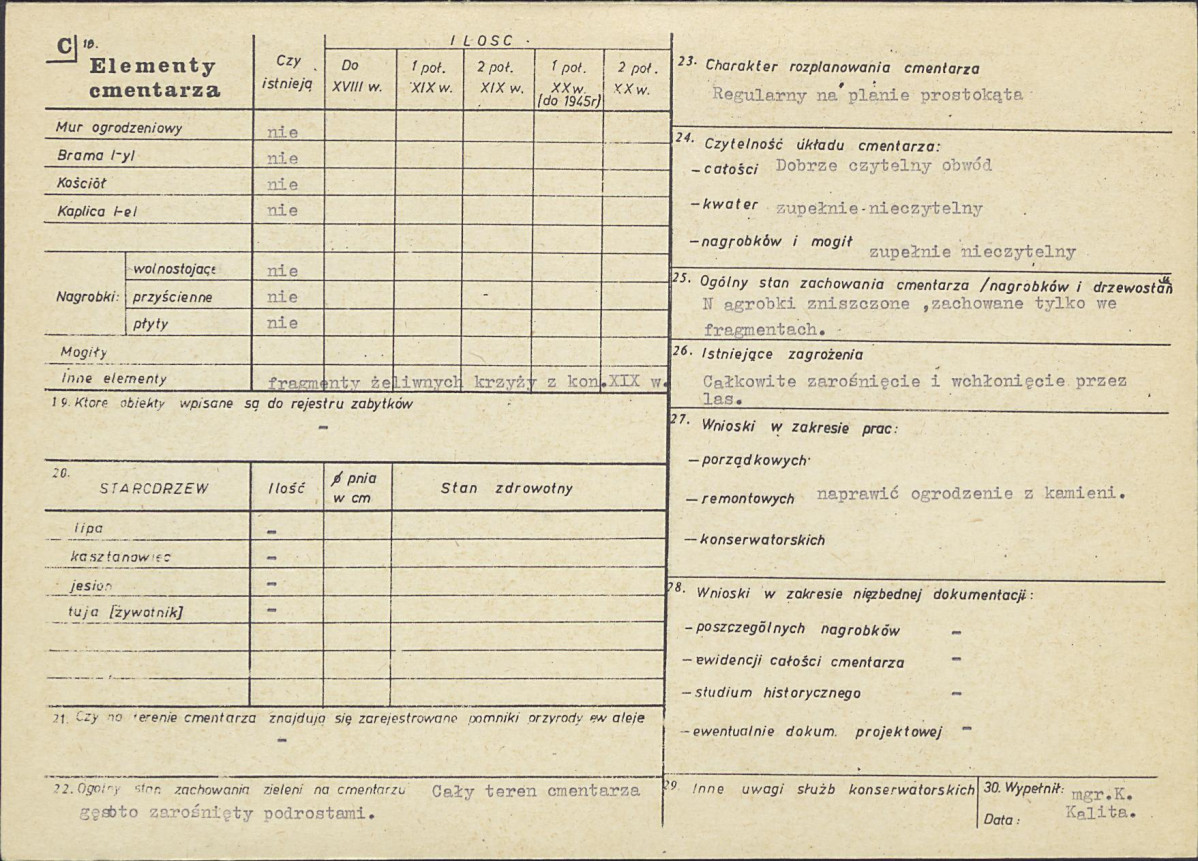 C 18.
Elementy cmentarza
Czy istnieją
ILOSC
Do XVIII w.
1 poł. XIX w.
2 poł. XIX w.
1 poł. XX w. [do 1945r]
2 poł. XX w.
Mur ogrodzeniowy nie
Brama /-y/ nie
Kościół nie
Kaplica /-e/ nie
Nagrobki:
wolnostojące nie
przyścienne nie
płyty nie
Mogiły
Inne elementy fragmenty żeliwnych krzyży z kon.XIX w.
19. Które obiekty wpisane są do rejestru zabytków
-
20. STARODRZEW Ilość ø pnia w cm Stan zdrowotny
lipa -
kasztanowiec -
jesion -
tuja [żywotnik] -
21. Czy na terenie cmentarza znajdują się zarejestrowane pomniki przyrody ew aleje
-
22. Ogólny stan zachowania zieleni na cmentarzu Cały teren cmentarza
gęsto zarośnięty podrostami.
23. Charakter rozplanowania cmentarza
Regularny na planie prostokąta
24. Czytelność układu cmentarza:
- całości Dobrze czytelny obwód
- kwater zupełnie nieczytelny
- nagrobków i mogił zupełnie nieczytelny
25. Ogólny stan zachowania cmentarza /nagrobków i drzewostan
N agrobki zniszczone ,zachowane tylko we
fragmentach.
26. Istniejące zagrożenia
Całkowite zarośnięcie i wchłonięcie przez
las.
27. Wnioski w zakresie prac:
- porządkowych
- remontowych naprawić ogrodzenie z kamieni.
- konserwatorskich
28. Wnioski w zakresie niezbednej dokumentacji:
- poszczególnych nagrobków -
- ewidencji całości cmentarza -
- studium historycznego -
- ewentualnie dokum. projektowej -
29. Inne uwagi służb konserwatorskich
30. Wypełnił: mgr.K.
Kalita.
Data: